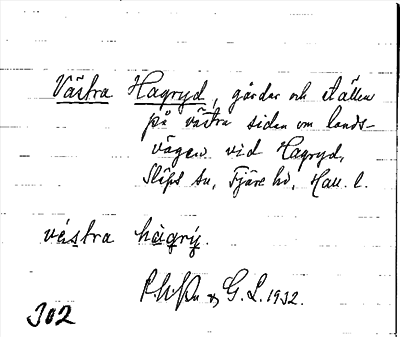 Västra Hagryd, gårdar och ställen
på västra sidan om lands-
vägen vid Hagryd,
Släps sn, Fjäre hd, Hall. l.
västra hàgrý.
G. L. 1932.
302